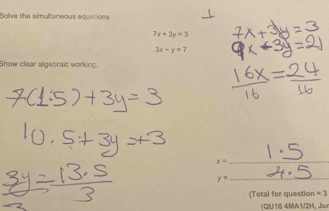 Solve the simultaneous equations
7x + 3y = 3
3x - y = 7
Show clear algebraic working.
7x + 3y = 3
9x - 3y = 21
16x = 24
16 16
7(1.5) + 3y = 3
10.5 + 3y = +3
3y = 13.5
3 3
x = 1.5
y = 4.5
(Total for question = 3
(QU10 4MA1/2H, Jun